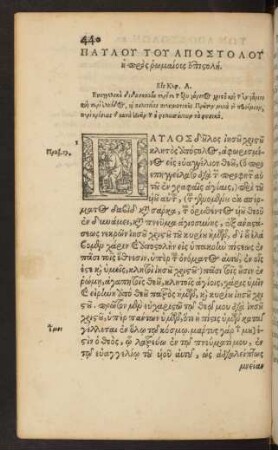 440
ΠΑΥΛΟΥ ΤΟΥ ΑΠΟΣΤΟΛΟΥ
ἡ πρὸς ῥωμαίους ἐπιστολή.
Κεφ. Α.
ΠΑΥΛΟΣ δοῦλος ἰησοῦ χριστοῦ
κλητὸς ἀπόστολος, ἀφωρισμέ-
νος εἰς εὐαγγέλιον θεοῦ, (ὃ προ
επηγγείλατο διὰ τῶν προφητῶν
αὐτοῦ ἐν γραφαῖς ἁγίαις,) περὶ τοῦ
υἱοῦ αὐτοῦ, (τοῦ γενομένου ἐκ σπέρ-
ματος δαβὶδ κατὰ σάρκα, τοῦ ὁρισθέντος υἱοῦ θεοῦ
ἐν δυνάμει, κατὰ πνεῦμα ἁγιωσύνης, ἐξ ἀναστά-
σεως νεκρῶν) ἰησοῦ χριστοῦ τοῦ κυρίου ἡμῶν, δι' οὗ ἐλά
βομεν χάριν καὶ ἀποστολὴν εἰς ὑπακοὴν πίστεως ἐν
πᾶσι τοῖς ἔθνεσιν, ὑπὲρ τοῦ ὀνόματος αὐτοῦ, ἐν οἷς
ἐστε καὶ ὑμεῖς, κλητοὶ ἰησοῦ χριστοῦ· πᾶσι τοῖς οὖσιν ἐν
ῥώμῃ, ἀγαπητοῖς θεοῦ, κλητοῖς ἁγίοις, χάρις ὑμῖν
καὶ εἰρήνη ἀπὸ θεοῦ πατρὸς ἡμῶν, καὶ κυρίου ἰησοῦ χριστοῦ.
Πρῶτον μὲν εὐχαριστῶ τῷ θεῷ μου διὰ ἰησοῦ
χριστοῦ, ὑπὲρ πάντων ὑμῶν, ὅτι ἡ πίστις ὑμῶν καταγ
γέλλεται ἐν ὅλῳ τῷ κόσμῳ. μάρτυς γάρ μου
ἐστὶν ὁ θεὸς, ᾧ λατρεύω ἐν τῷ πνεύματί μου, ἐν
τῷ εὐαγγελίῳ τοῦ υἱοῦ αὐτοῦ, ὡς ἀδιαλείπτως
μνείαν